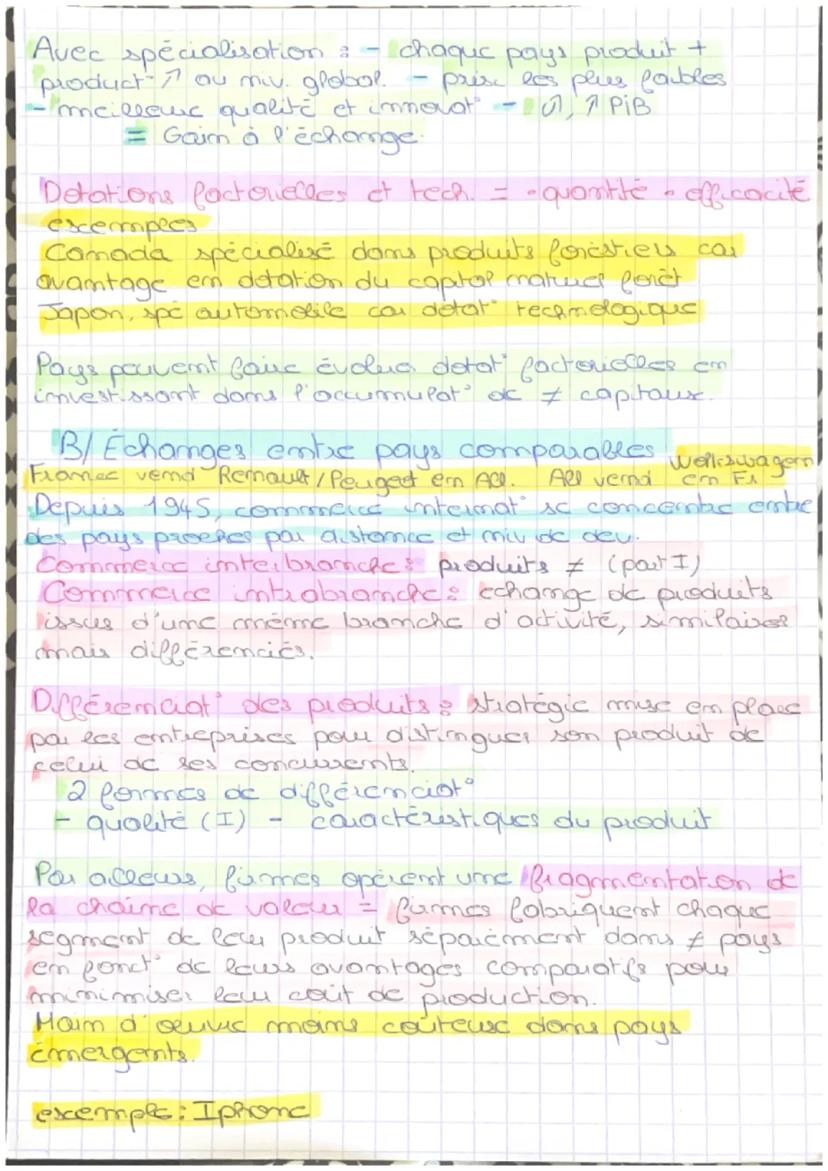 Avec spécialisation : - chaque pays produit +
product° ↗ au niv. global. - prix les plus faibles
- meilleure qualité et innovat° - ↗, ↑ PIB
= Gain à l'échange.
Dotations factorielles et tech. = • quantité • efficacité
exemples
Canada spécialisé dans produits forestiers car
avantage en dotation du capital naturel forêt
Japon, spé automobile car dotat° technologique
Pays peuvent faire évoluer dotat° factorielles en
investissant dans l'accumulat° de ≠ capitaux.
B/ Échanges entre pays comparables
France vend Renault/Peugeot en All. All vend Wolkswagen en Fr
Depuis 1945, commerce internat° se concentre entre
des pays proches par distance et niv de dev.
Commerce interbranche : produits ≠ (part I)
Commerce intrabranche : échange de produits
issus d'une même branche d'activité, similaires
mais différenciés.
Différenciat° des produits : stratégie mise en place
par les entreprises pour distinguer son produit de
celui de ses concurrents.
2 formes de différenciat°
- qualité (I) - caractéristiques du produit
Par ailleurs, firmes opèrent une fragmentation de
la chaîne de valeur = firmes fabriquent chaque
segment de leur produit séparément dans ≠ pays
en fonct° de leurs avantages comparatifs pour
minimiser leur coût de production.
Main d'œuvre moins coûteuse dans pays
émergents.
exemple : Iphone